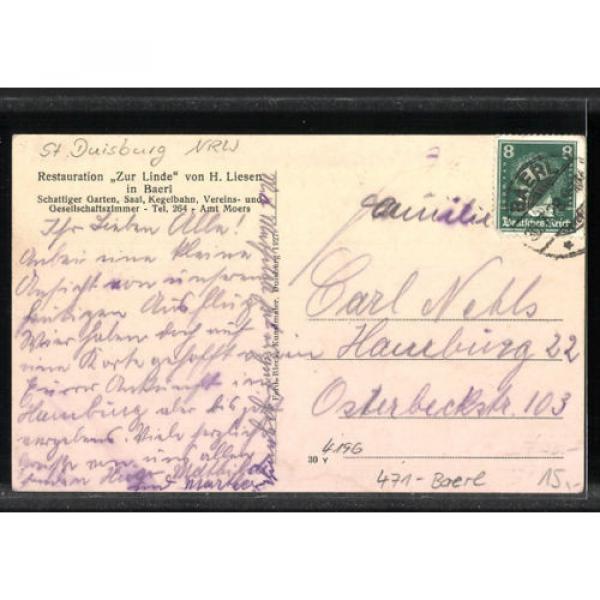 St. Duisburg NRW
Restauration „Zur Linde" von H. Liesen
in Baerl
Schattiger Garten, Saal, Kegelbahn, Vereins- und
Gesellschaftszimmer - Tel. 264 - Amt Moers
Ihr Lieben Alle!
Anbei eine kleine
Ansicht von unserem
heutigen Ausflug
Wir haben doch auf
eine Karte gehofft
Eurer Ankunft in
Hamburg aber bis jetzt
vergebens. Viele herzliche
Grüße von uns allen
Hugo Mathilde
und Martha
8 8
BAERL
Deutsches Reich
Familie
Carl Nehls
Hamburg 22
Osterbeckstr. 103
30 Y
4196
471-Baerl
15,-